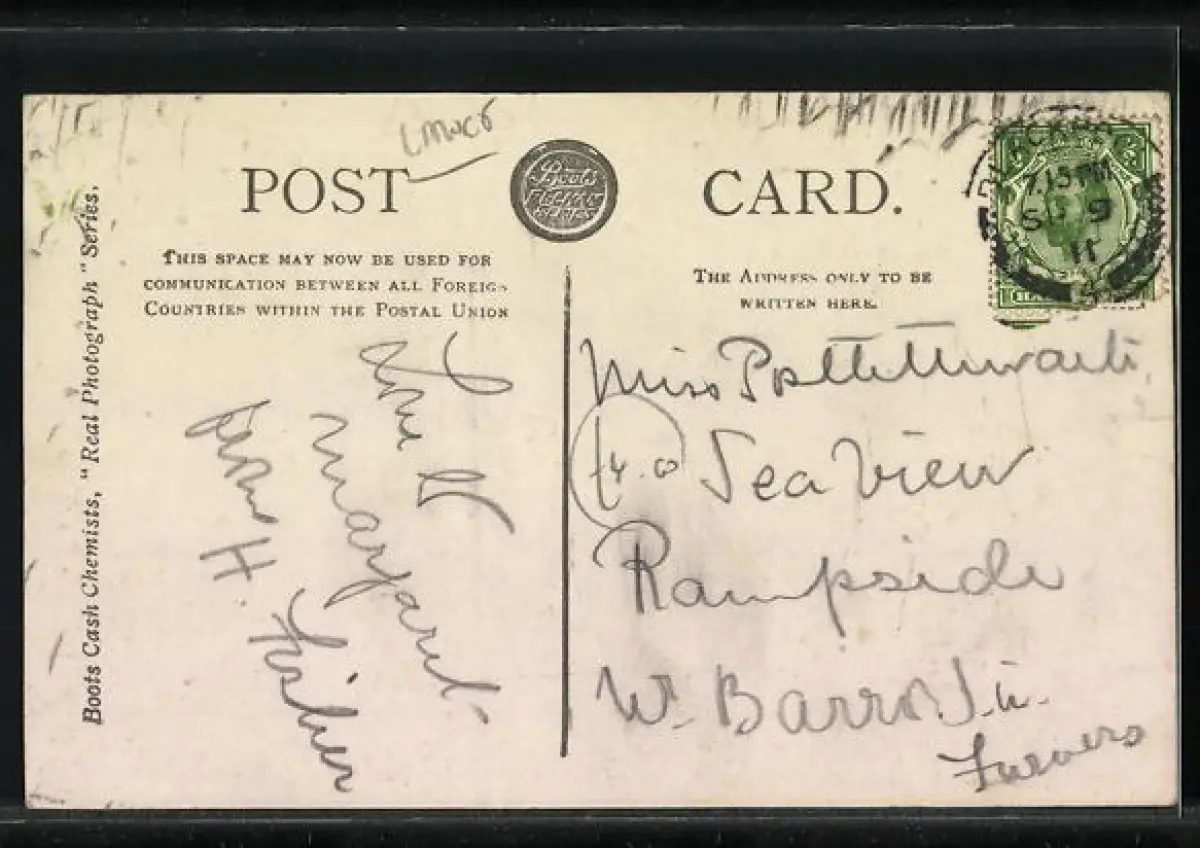 LMwc6
POST CARD.
Boots
SERIES
THIS SPACE MAY NOW BE USED FOR
COMMUNICATION BETWEEN ALL FOREIGN
COUNTRIES WITHIN THE POSTAL UNION
THE ADDRESS ONLY TO BE
WRITTEN HERE.
7.15 PM
SP 9
11
Boots Cash Chemists, "Real Photograph" Series.
Love to
Margaret
from
H. Fisher
Miss Postlethwaite
Sea View
Rampside
Nr. Barrow. I. n.
Furness